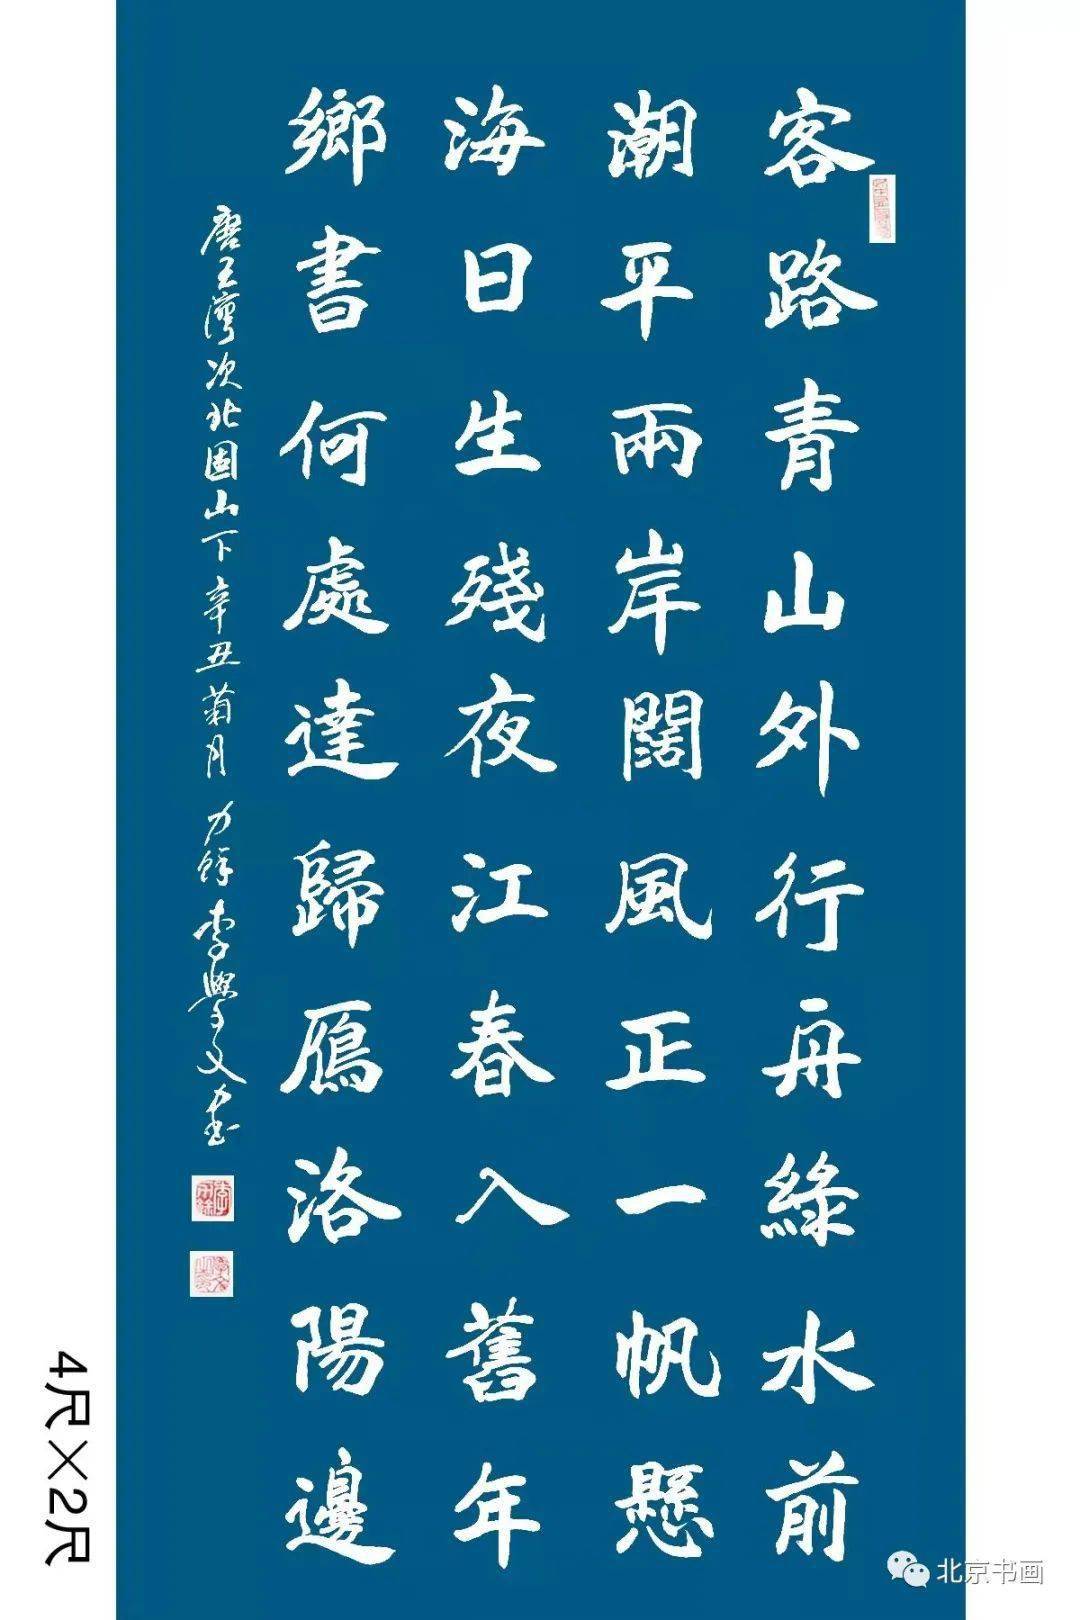 客路青山外行舟綠水前
潮平兩岸闊風正一帆懸
海日生殘夜江春入舊年
鄉書何處達歸鴈洛陽邊
唐王灣次北固山下辛丑菊月力鋒李學文書
4尺×2尺
北京书画